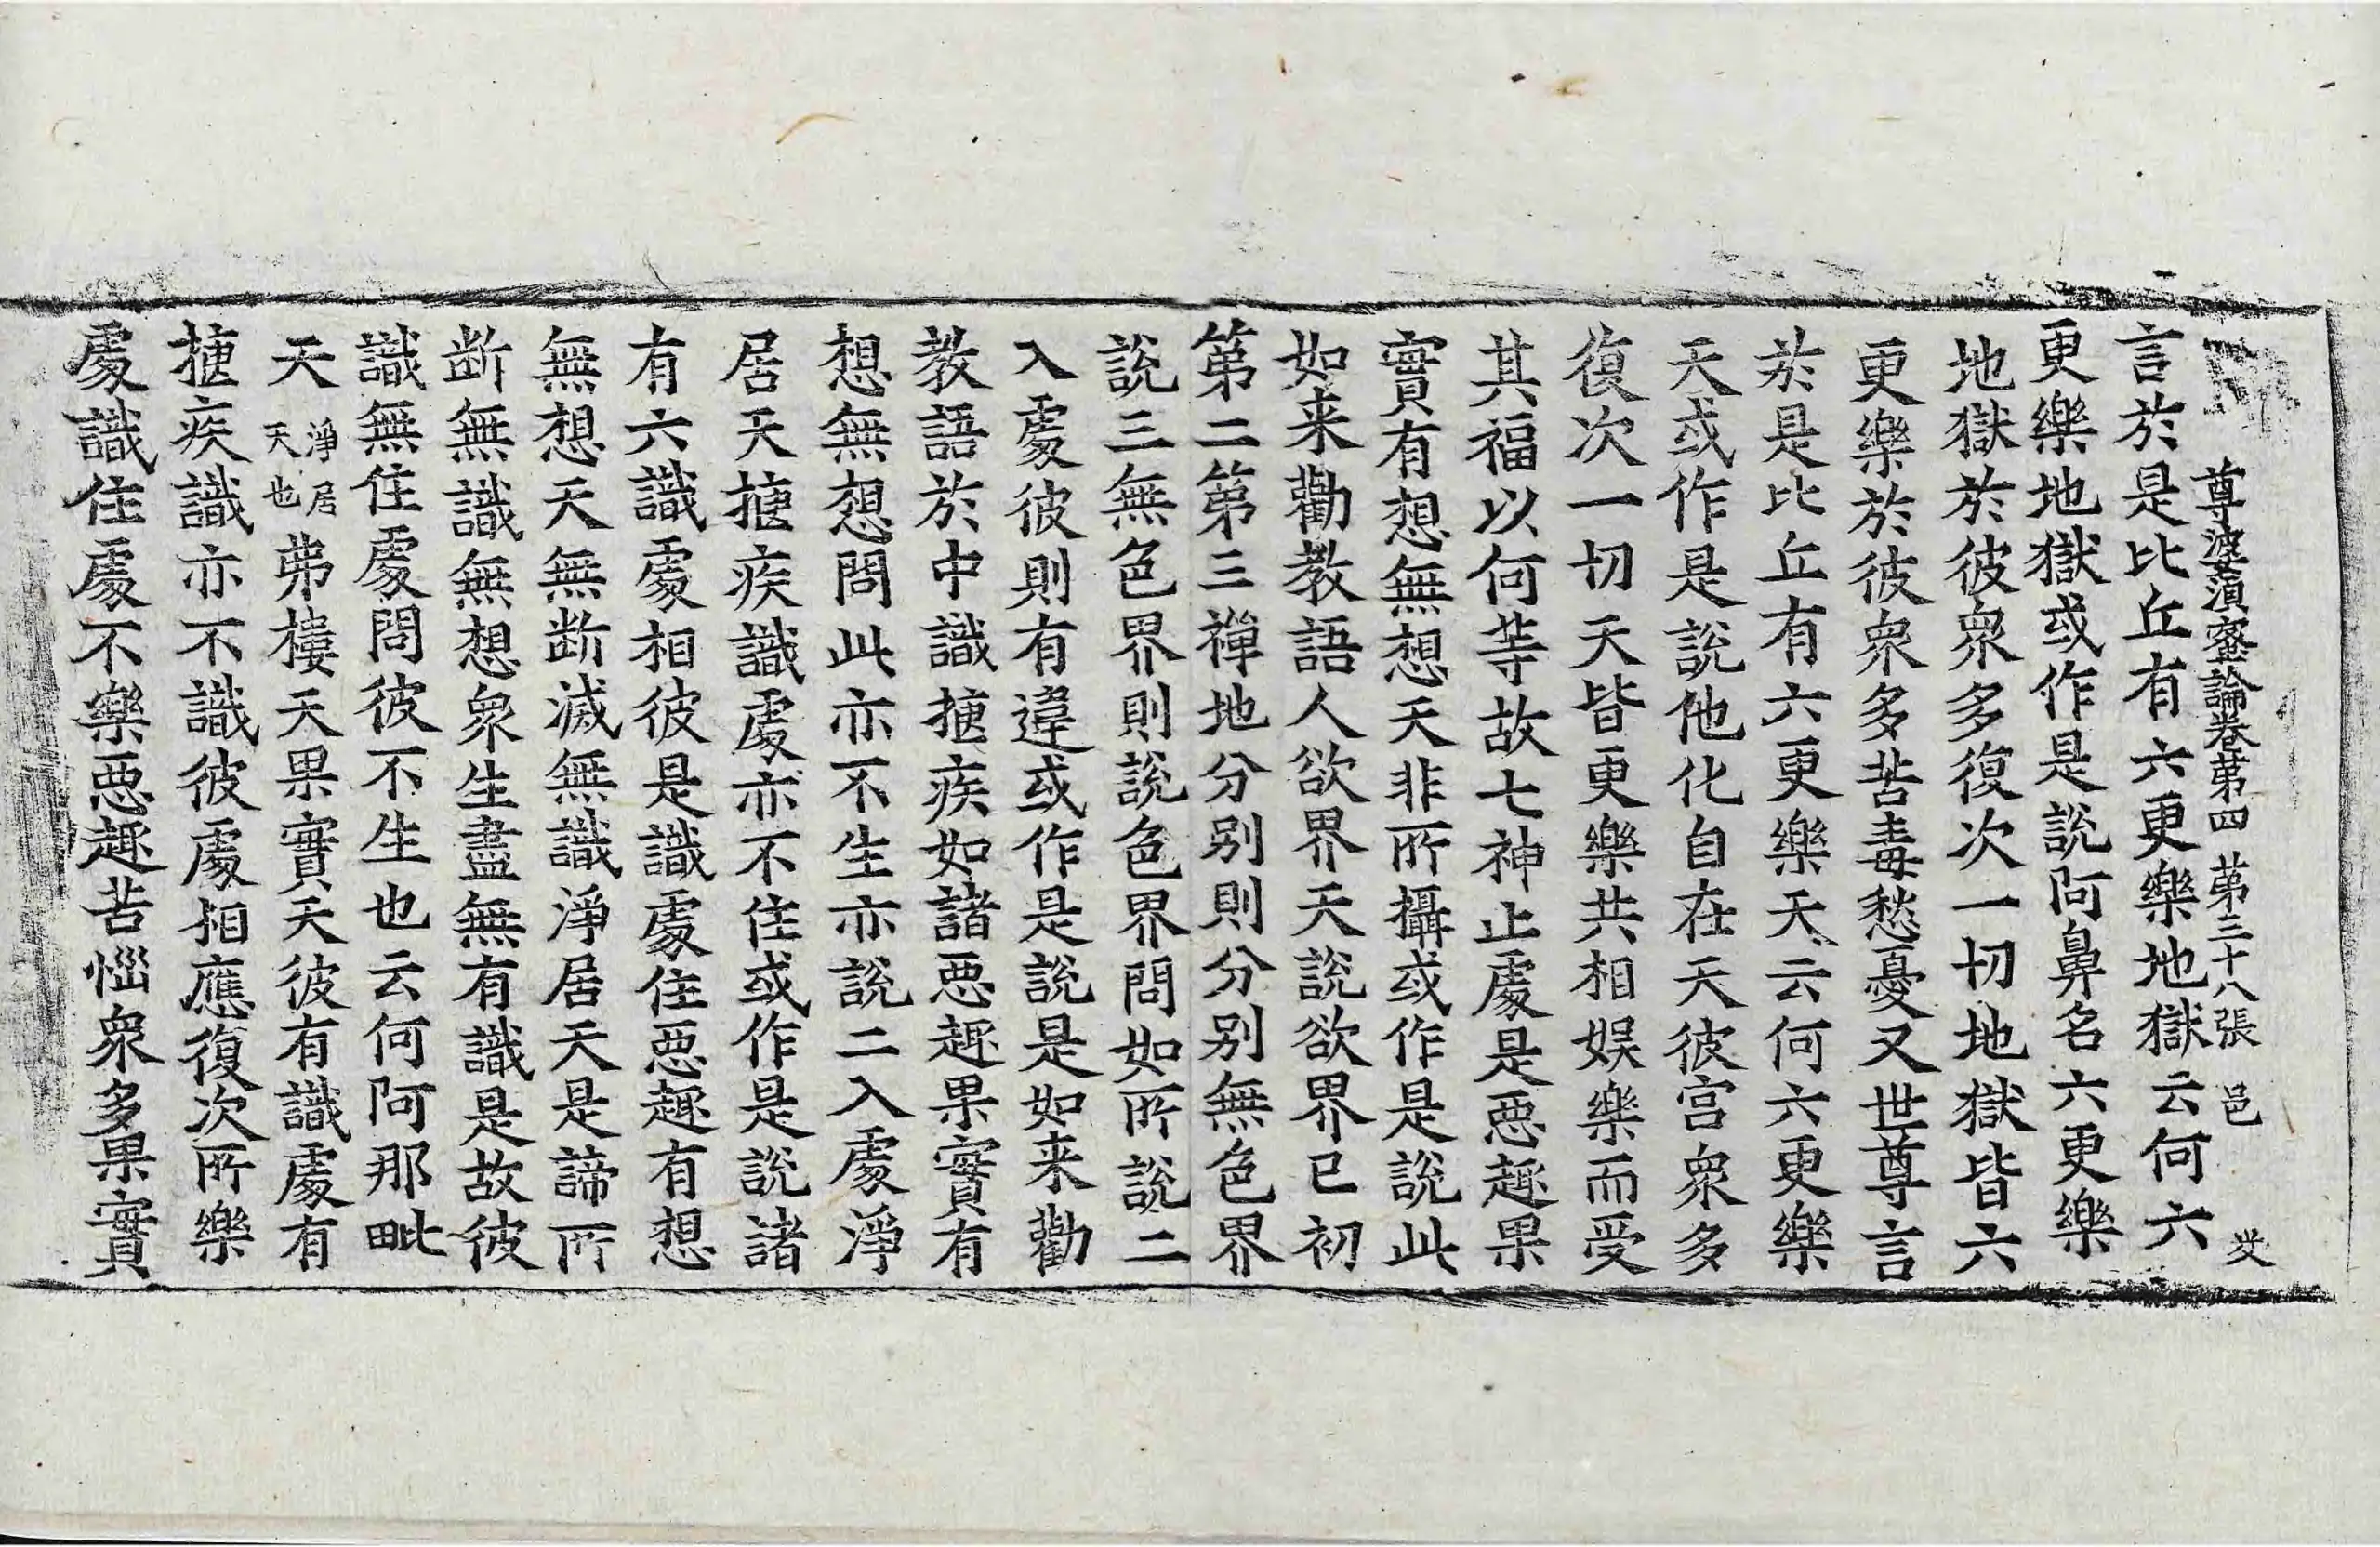 尊婆湏蜜論卷苐四　苐三十八張　邑
言於是比丘有六更樂地獄云何六
更樂地獄或作是說阿鼻名六更樂
地獄於彼衆多復次一切地獄皆六
更樂於彼衆多苦毒愁憂又世尊言
於是比丘有六更樂天云何六更樂
天或作是說他化自在天彼宫衆多
復次一切天皆更樂共相娱樂而受
其福以何等故七神止處是惡趣果
實有想無想天非所攝或作是說此
如来勸教語人欲界天說欲界已初
第二第三禪地分别則分别無色界
說三無色界則說色界問如所說二
入處彼則有違或作是說是如来勸
教語於中識揰疾如諸惡趣果實有
想無想問此亦不生亦說二入處淨
居天揰疾識處亦不住或作是說諸
有六識處相彼是識處住惡趣有想
無想天無断滅無識淨居天是諦所
断無識無想衆生盡無有識是故彼
識無住處問彼不生也云何阿那毗
天淨居天也弗樓天果實天彼有識處有
揰疾識亦不識彼處相應復次所樂
處識住處不樂惡趣苦惱衆多果實